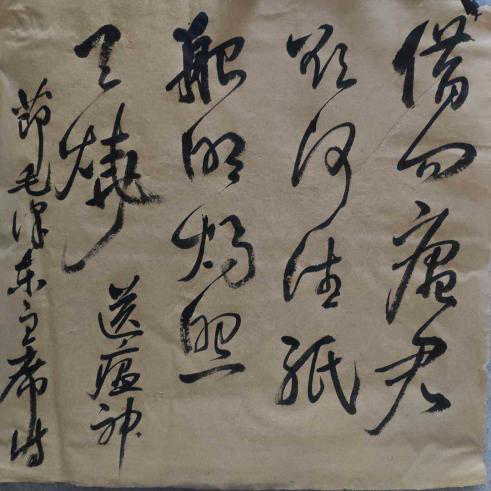 借问瘟君
欲何往纸
船明烛照
天烧 送瘟神
节毛泽东主席诗